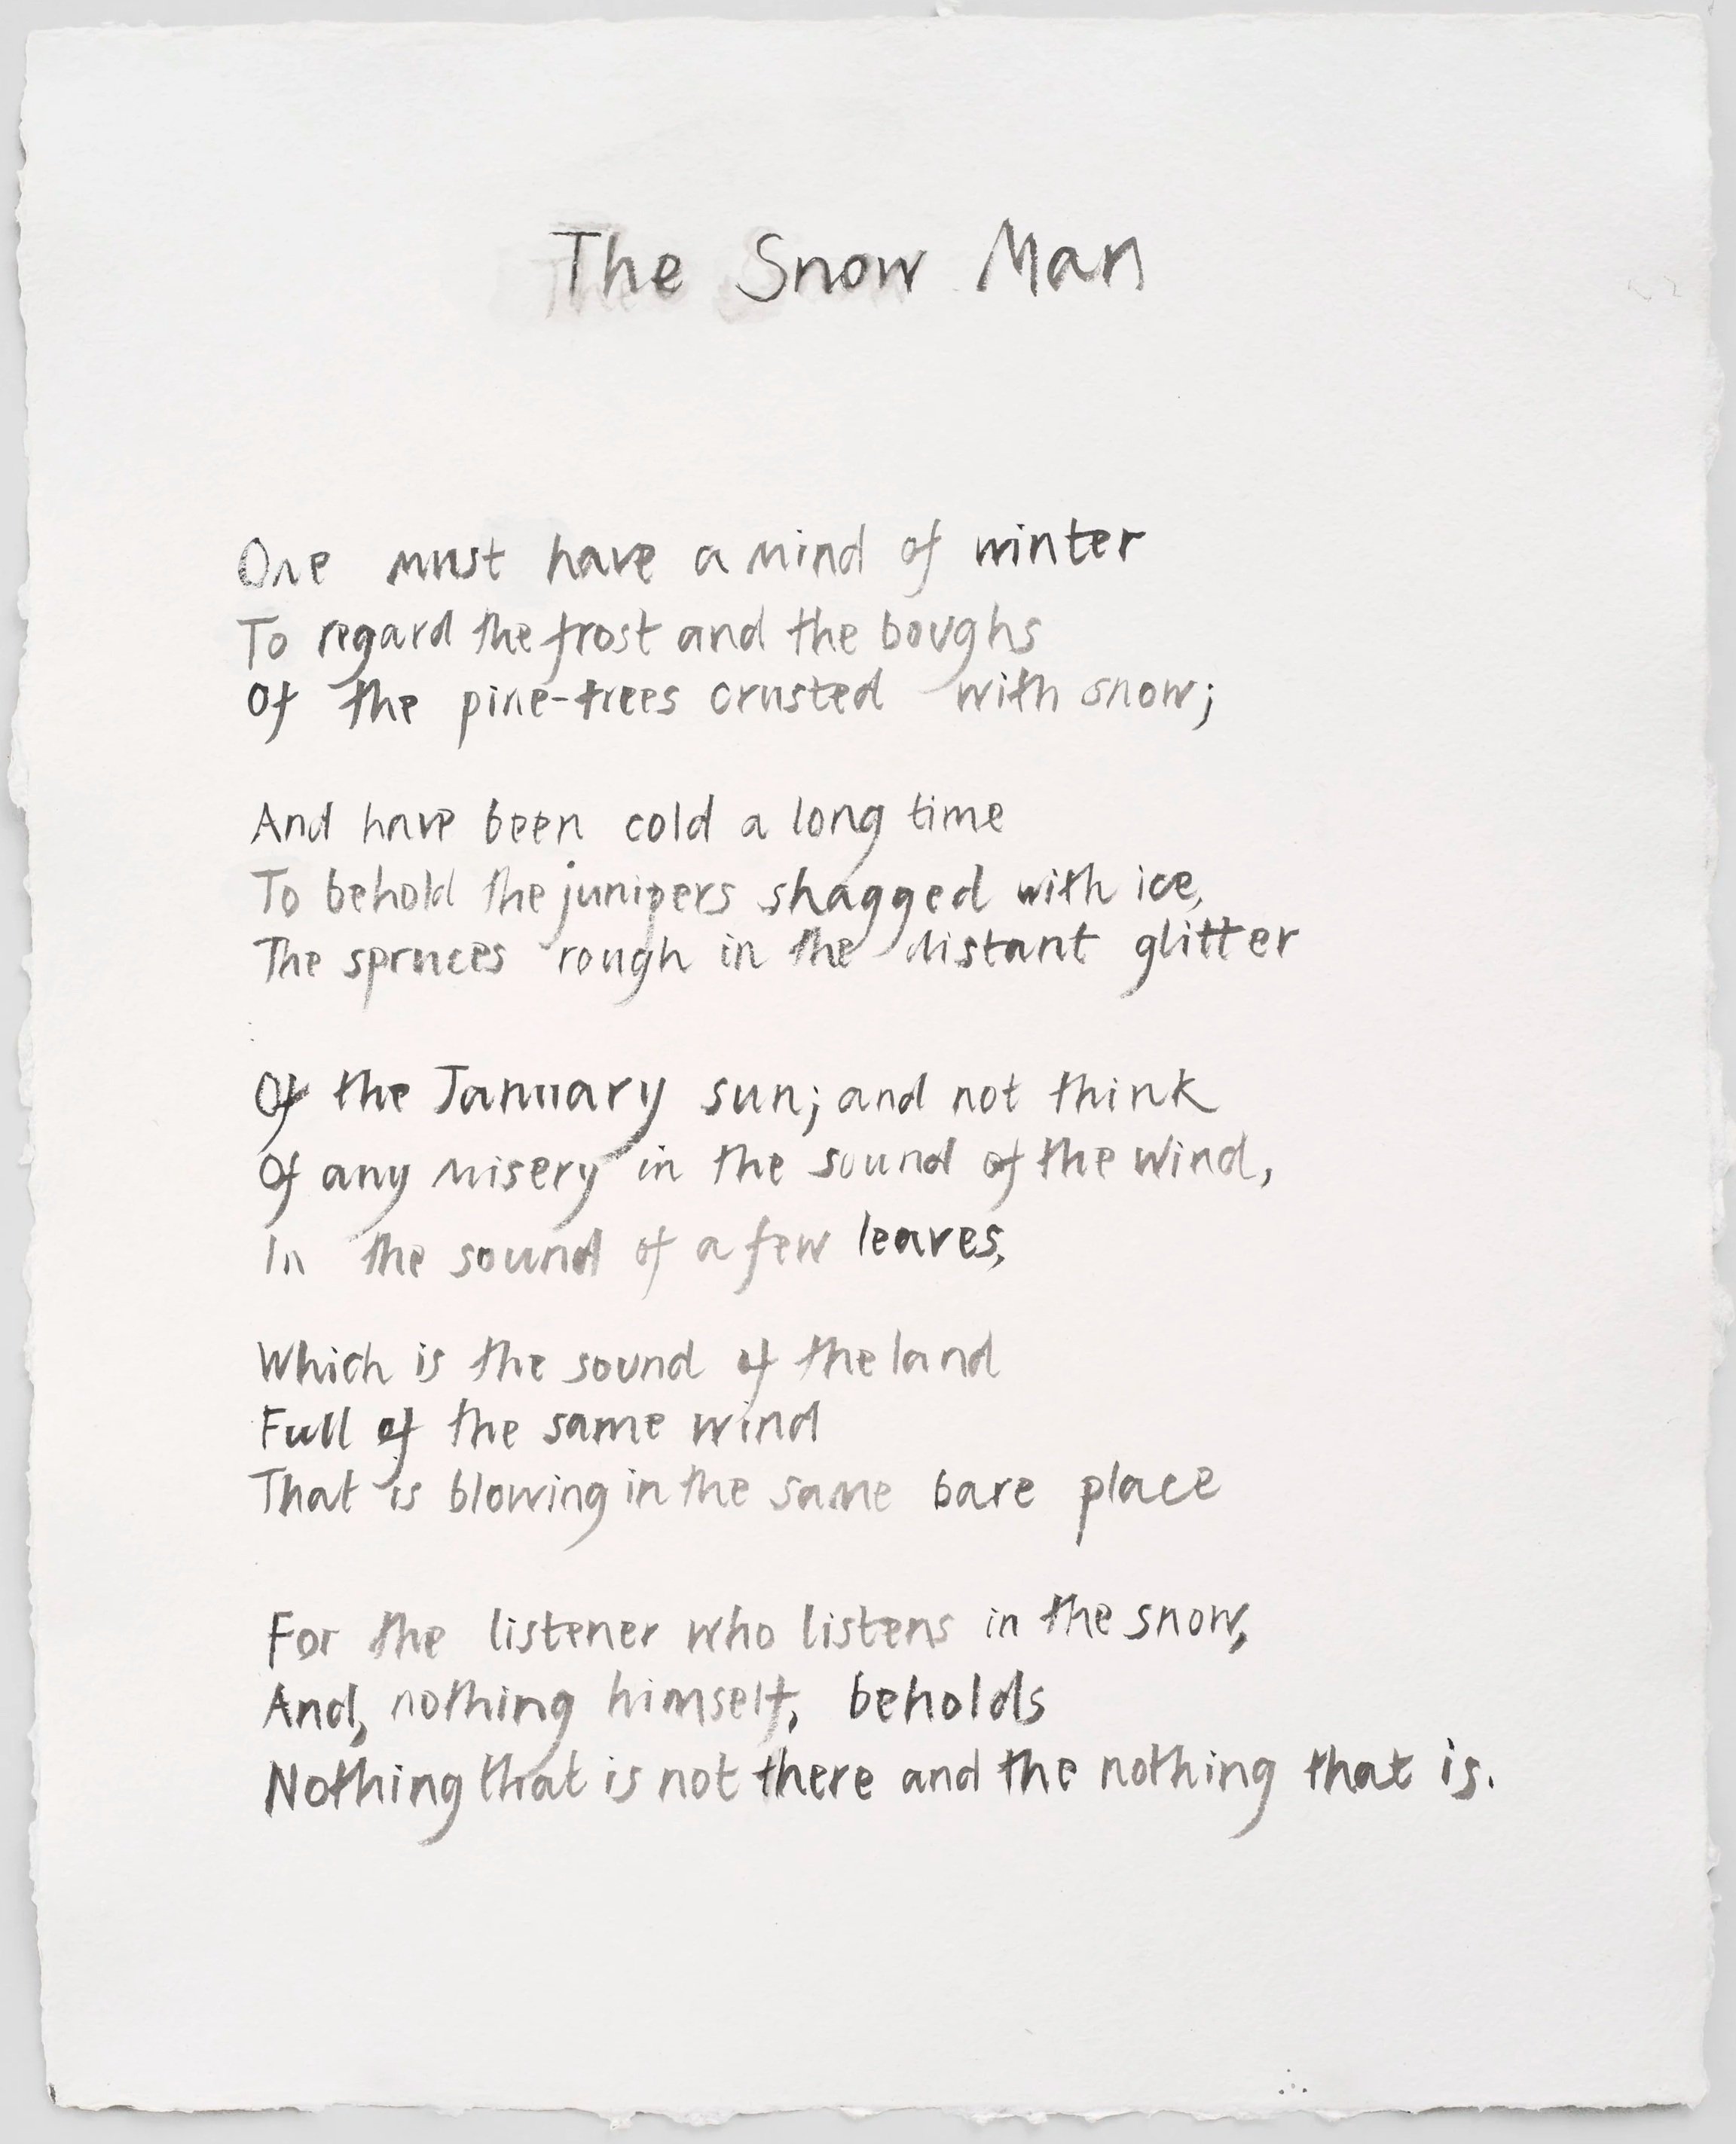 The Snow Man
One must have a mind of winter
To regard the frost and the boughs
Of the pine-trees crusted with snow;
And have been cold a long time
To behold the junipers shagged with ice,
The spruces rough in the distant glitter
Of the January sun; and not think
Of any misery in the sound of the wind,
In the sound of a few leaves,
Which is the sound of the land
Full of the same wind
That is blowing in the same bare place
For the listener who listens in the snow,
And, nothing himself, beholds
Nothing that is not there and the nothing that is.